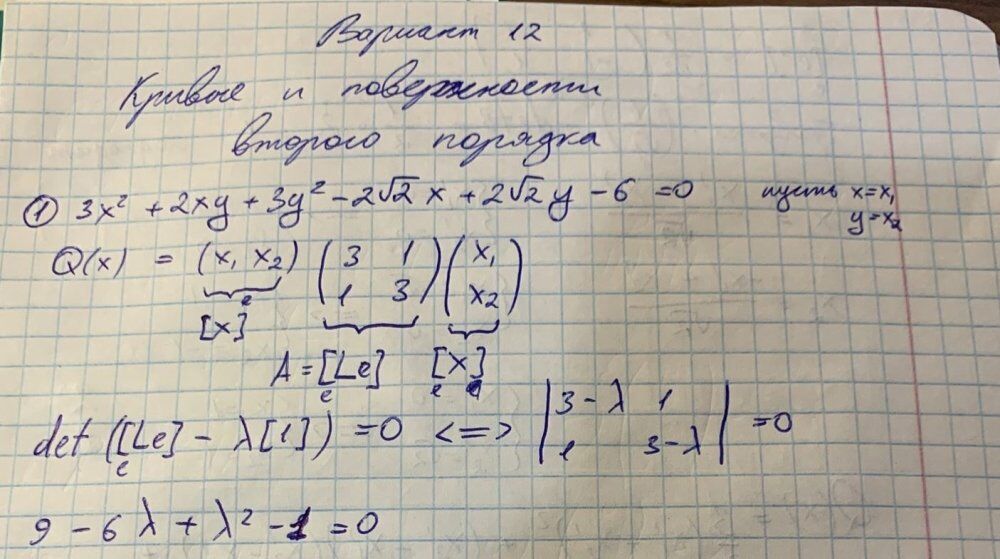 Вариант 12
Кривые и поверхности
второго порядка
① 3x² + 2xy + 3y² - 2√2 x + 2√2 y - 6 = 0 пусть x = x₁
y = x₂
Q(x) = (x₁ x₂) (3 1) (x₁)
(1 3) (x₂)
[x]ᵉ
A = [Le] [x]
e e
det ([Le] - λ[1]) = 0 <=> |3-λ 1| = 0
e |1 3-λ|
9 - 6λ + λ² - 1 = 0